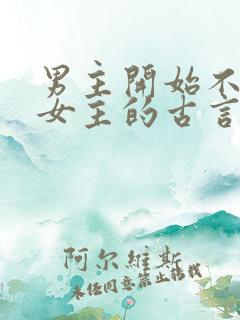 男主開始不
女主的古言
阿尔維斯
未经同意禁止转载